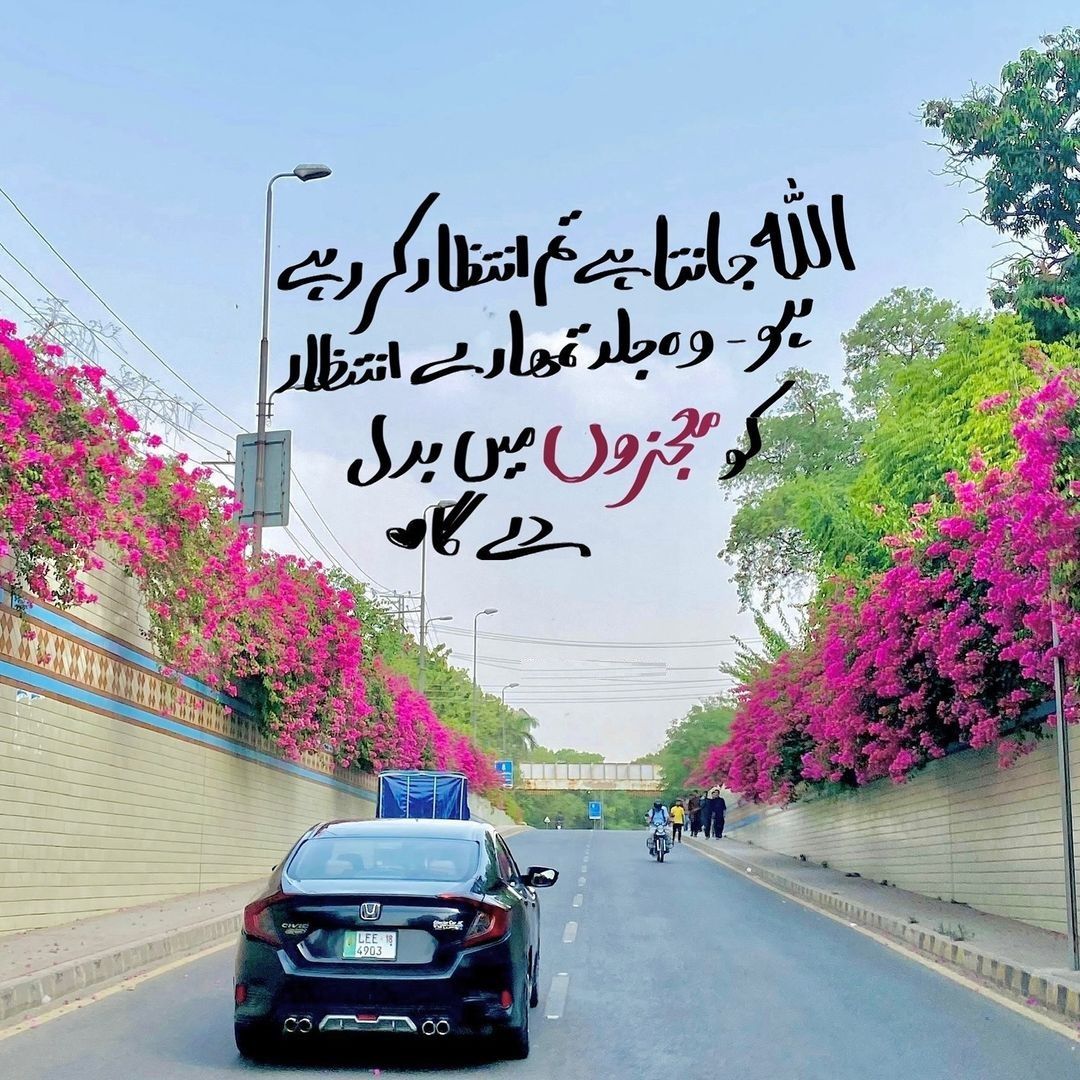 اللہ جانتا ہے تم انتظار کر رہے
ہو۔ وہ جلد تمھارے انتظار
کو معجزوں میں بدل
دے گا
CIVIC
LEE 18
4903